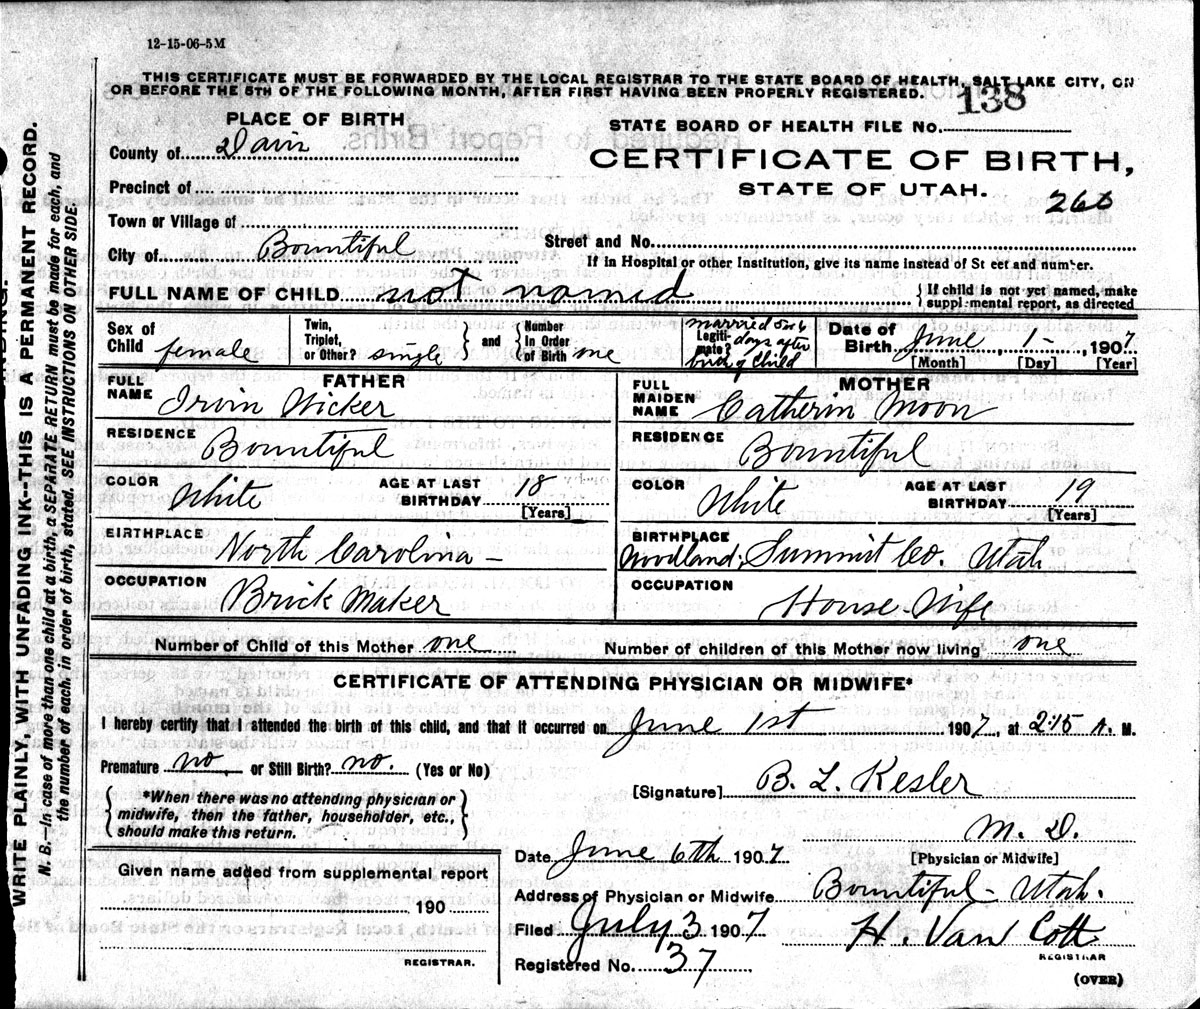 12-15-06-5M
THIS CERTIFICATE MUST BE FORWARDED BY THE LOCAL REGISTRAR TO THE STATE BOARD OF HEALTH, SALT LAKE CITY, ON
OR BEFORE THE 5TH OF THE FOLLOWING MONTH, AFTER FIRST HAVING BEEN PROPERLY REGISTERED.
138
PLACE OF BIRTH
STATE BOARD OF HEALTH FILE No.
County of Davis
CERTIFICATE OF BIRTH,
STATE OF UTAH.
Precinct of
260
Town or Village of
City of Bountiful
Street and No.
If in Hospital or other Institution, give its name instead of St eet and number.
FULL NAME OF CHILD not named
If child is not yet named, make
suppl-mental report, as directed
Sex of Child female
Twin, Triplet, or Other? single
and
Number in Order of Birth one
Legiti-mate? married only days after birth of child
Date of Birth June 1- , 1907
[Month] [Day] [Year]
FATHER
MOTHER
FULL NAME Irvin Wicker
FULL MAIDEN NAME Catherin Moon
RESIDENCE Bountiful
RESIDENCE Bountiful
COLOR White
AGE AT LAST BIRTHDAY 18 [Years]
COLOR White
AGE AT LAST BIRTHDAY 19 [Years]
BIRTHPLACE North Carolina -
BIRTHPLACE Woodland, Summit Co. Utah
OCCUPATION Brick Maker
OCCUPATION House Wife
Number of Child of this Mother one
Number of children of this Mother now living one
CERTIFICATE OF ATTENDING PHYSICIAN OR MIDWIFE*
I hereby certify that I attended the birth of this child, and that it occurred on June 1st 1907, at 2:15 A. M.
Premature no, or Still Birth? no. (Yes or No)
[Signature] B. L. Kesler
M. D.
[Physician or Midwife]
*When there was no attending physician or
midwife, then the father, householder, etc.,
should make this return.
Date June 6th 1907
Given name added from supplemental report
190
REGISTRAR.
Address of Physician or Midwife Bountiful - Utah.
Filed July 3 1907 H. Van Cott
REGISTRAR
Registered No. 37
(OVER)
WRITE PLAINLY, WITH UNFADING INK--THIS IS A PERMANENT RECORD.
N. B.—In case of more than one child at a birth, a SEPARATE RETURN must be made for each, and
the number of each, in order of birth, stated. SEE INSTRUCTIONS ON OTHER SIDE.